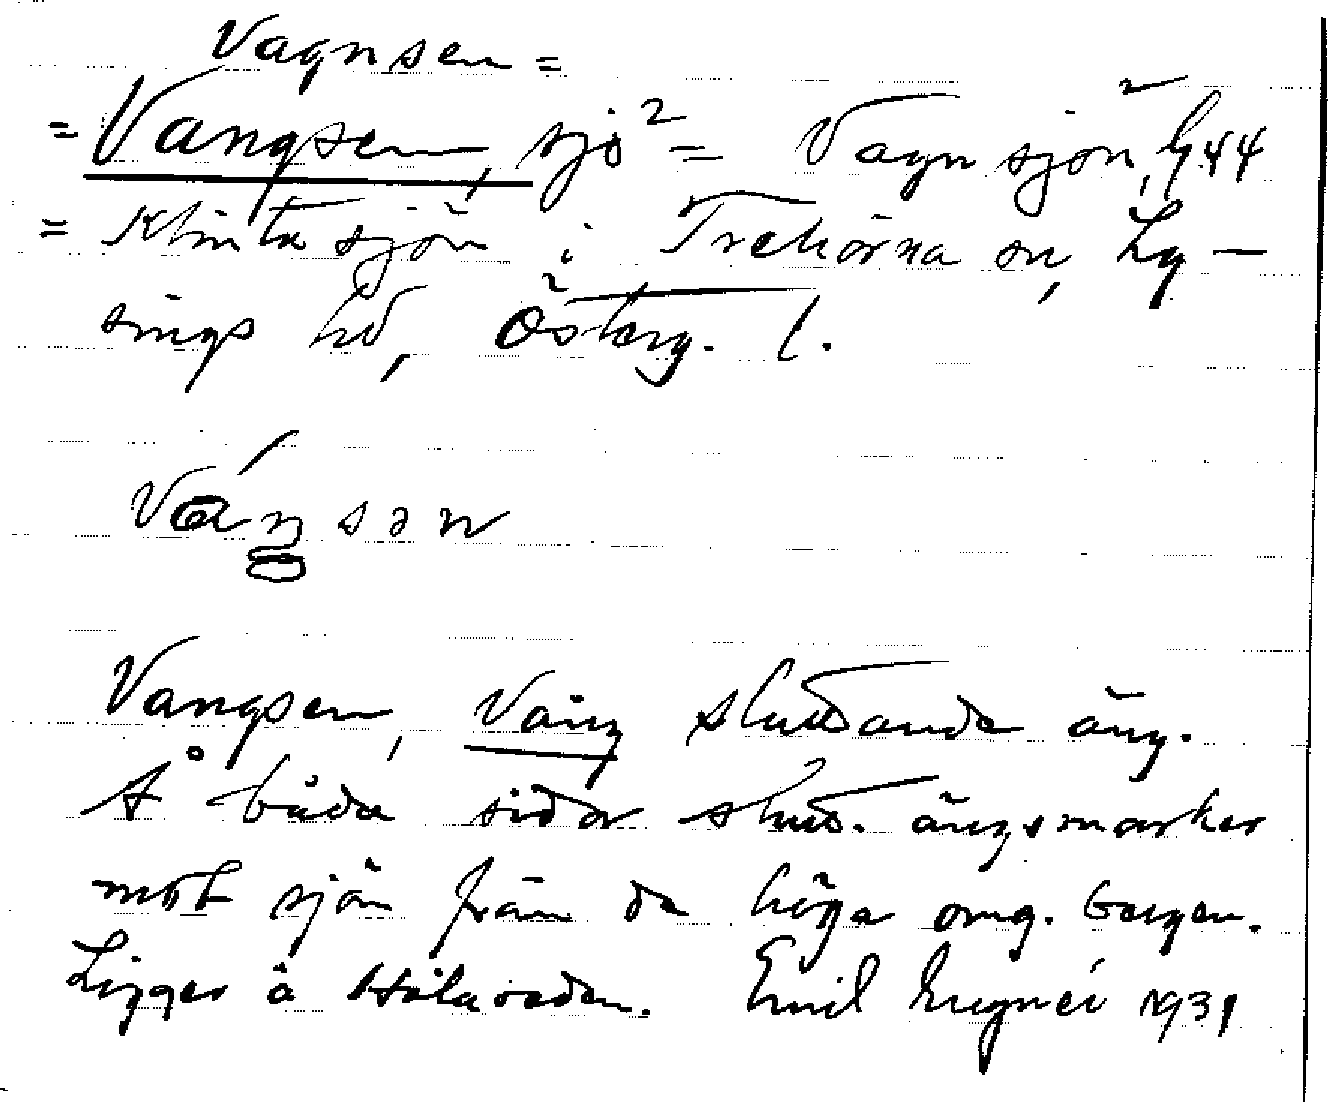 Vagnsen =
= Vangsen, sjö² = Vagnsjön, G 44
= Klintasjön i Trehörna sn, Ly-
sings hd, Österg. l.
Vangsen, Väng sluttande äng.
Å båda sidor slutt. ängsmarker
mot sjön från de höga omg. bergen.
Ligger å Hålaveden. Emil 1931